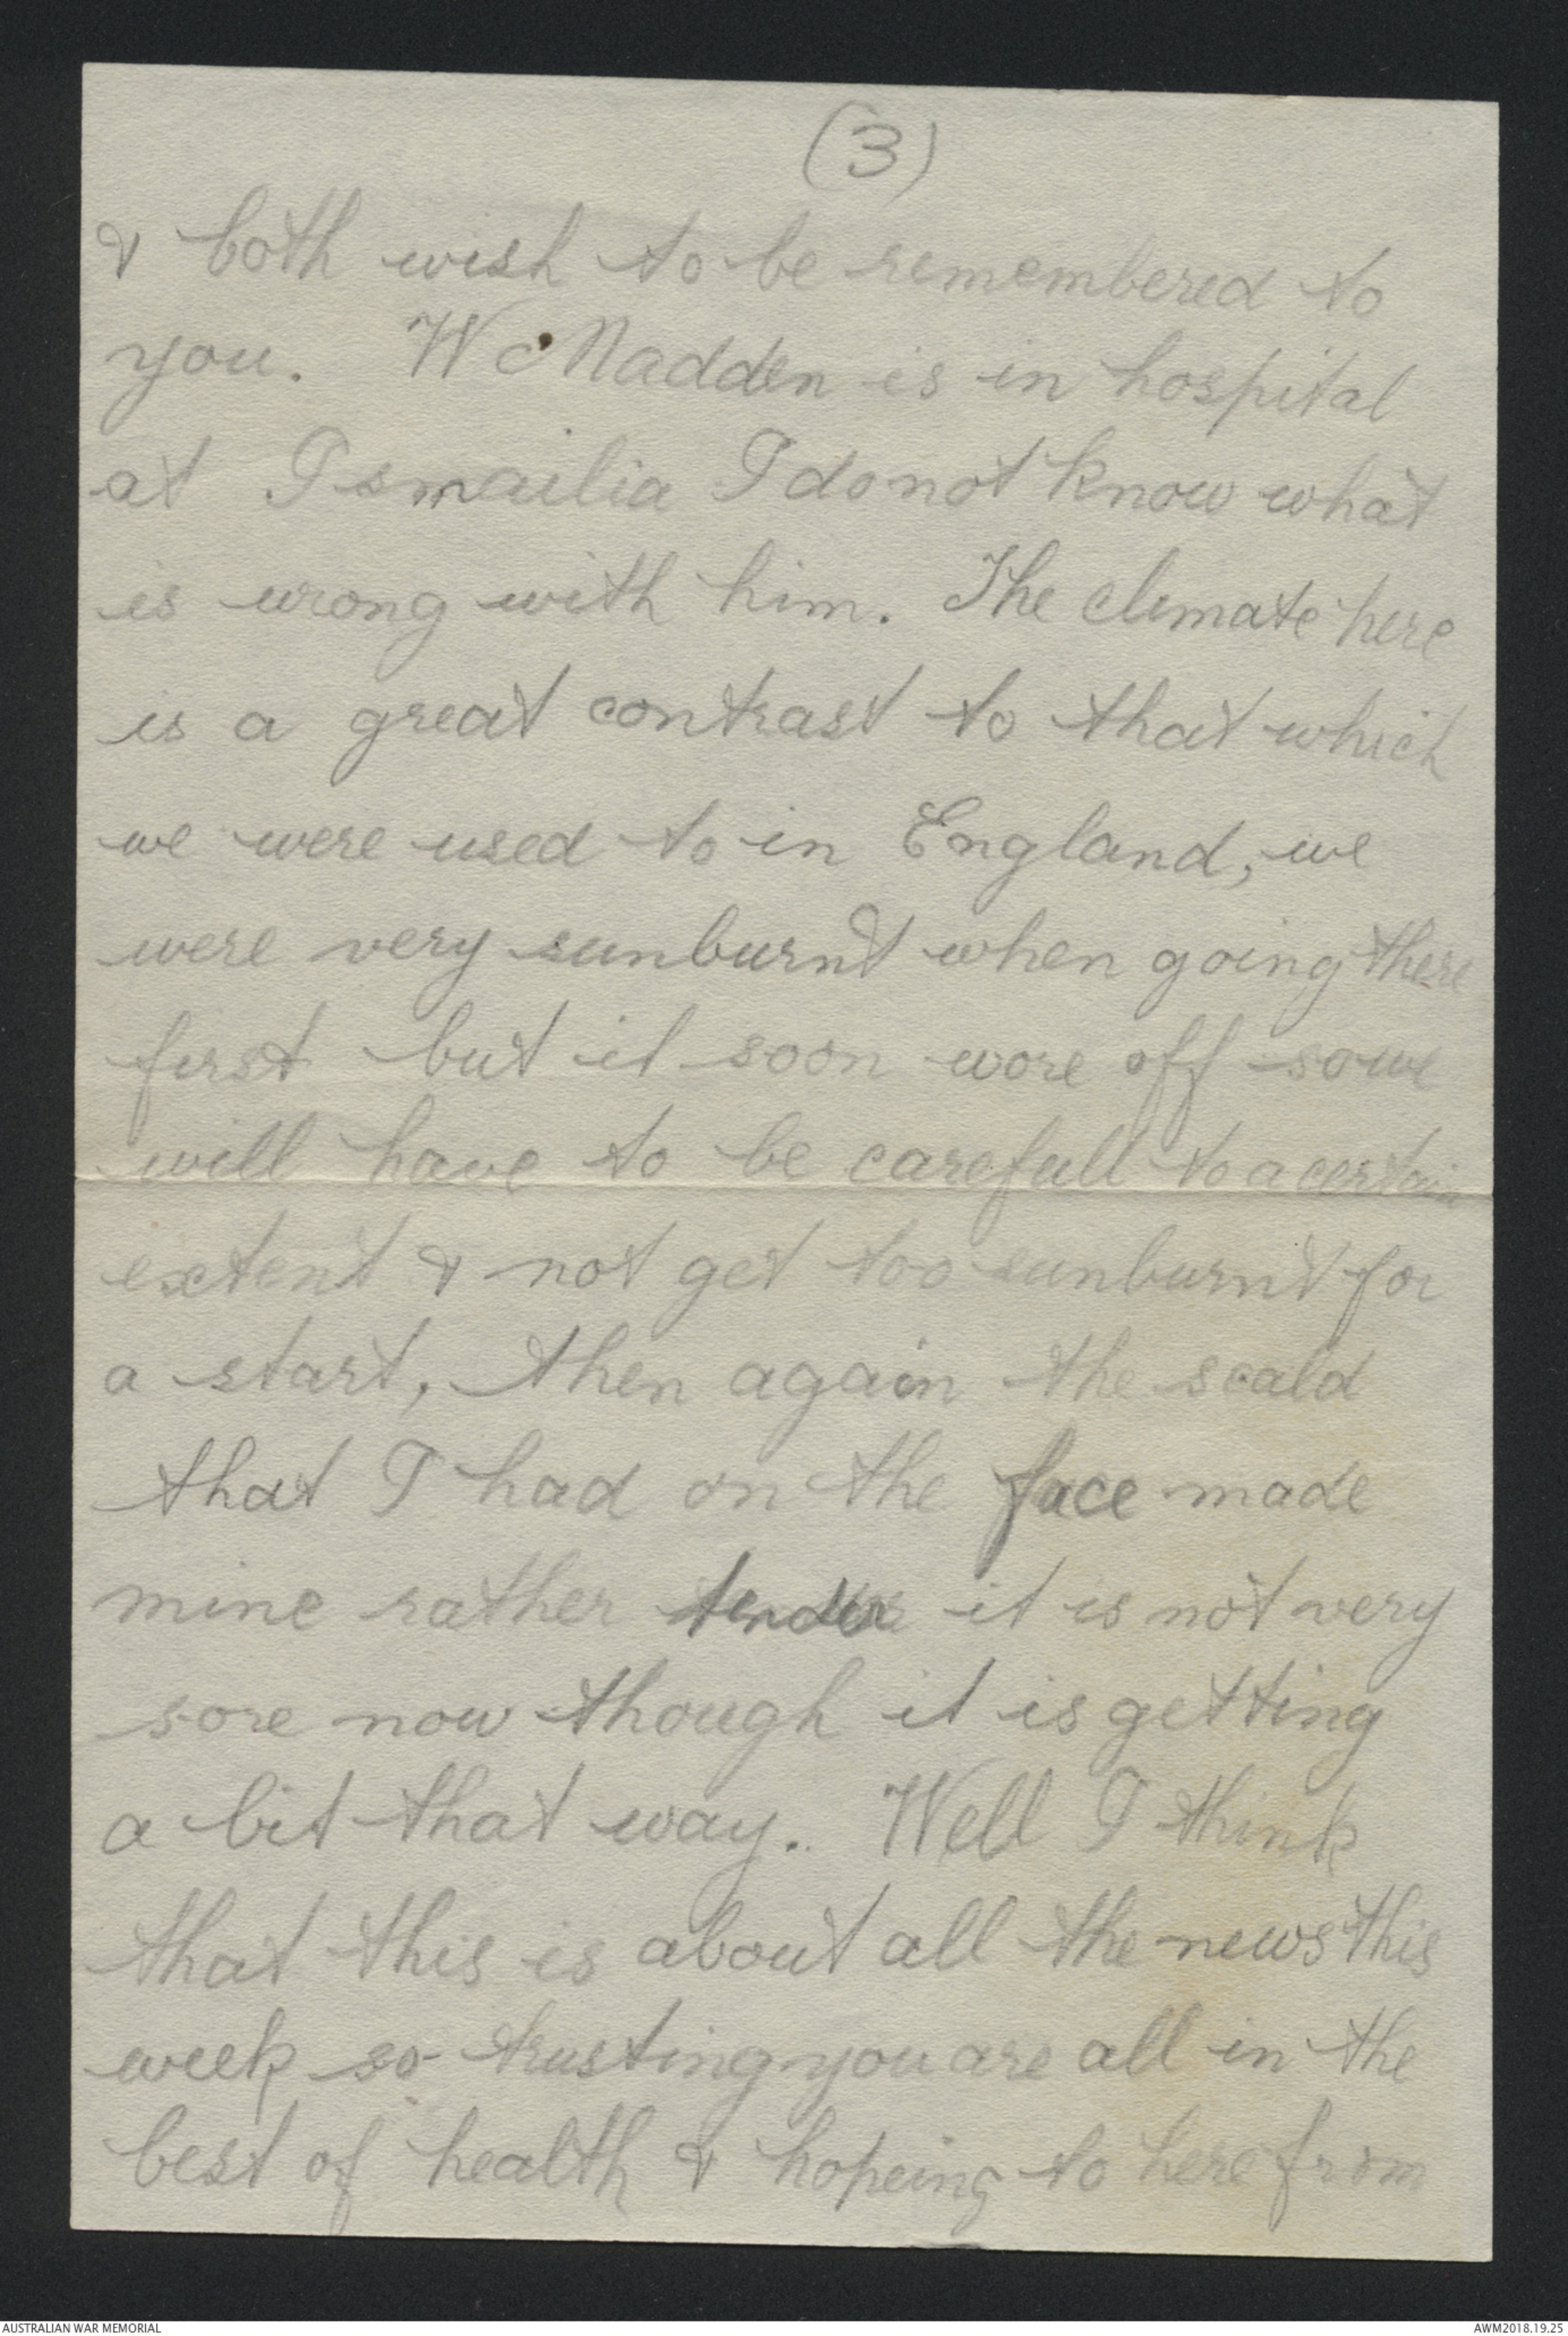 (3)
& both wish to be remembered to
you. W c Nadden is in hospital
at Ismailia I do not know what
is wrong with him. The climate here
is a great contrast to that which
we were used to in England, we
were very sunburnt when going there
first but it soon wore off so we
will have to be carefull to a certain
extent & not get too sunburnt for
a start, then again the scald
that I had on the face made
mine rather tender it is not very
sore now though it is getting
a bit that way.. Well I think
that this is about all the news this
week so trusting you are all in the
best of health & hopeing to here from
AUSTRALIAN WAR MEMORIAL
AWM2018.19.25